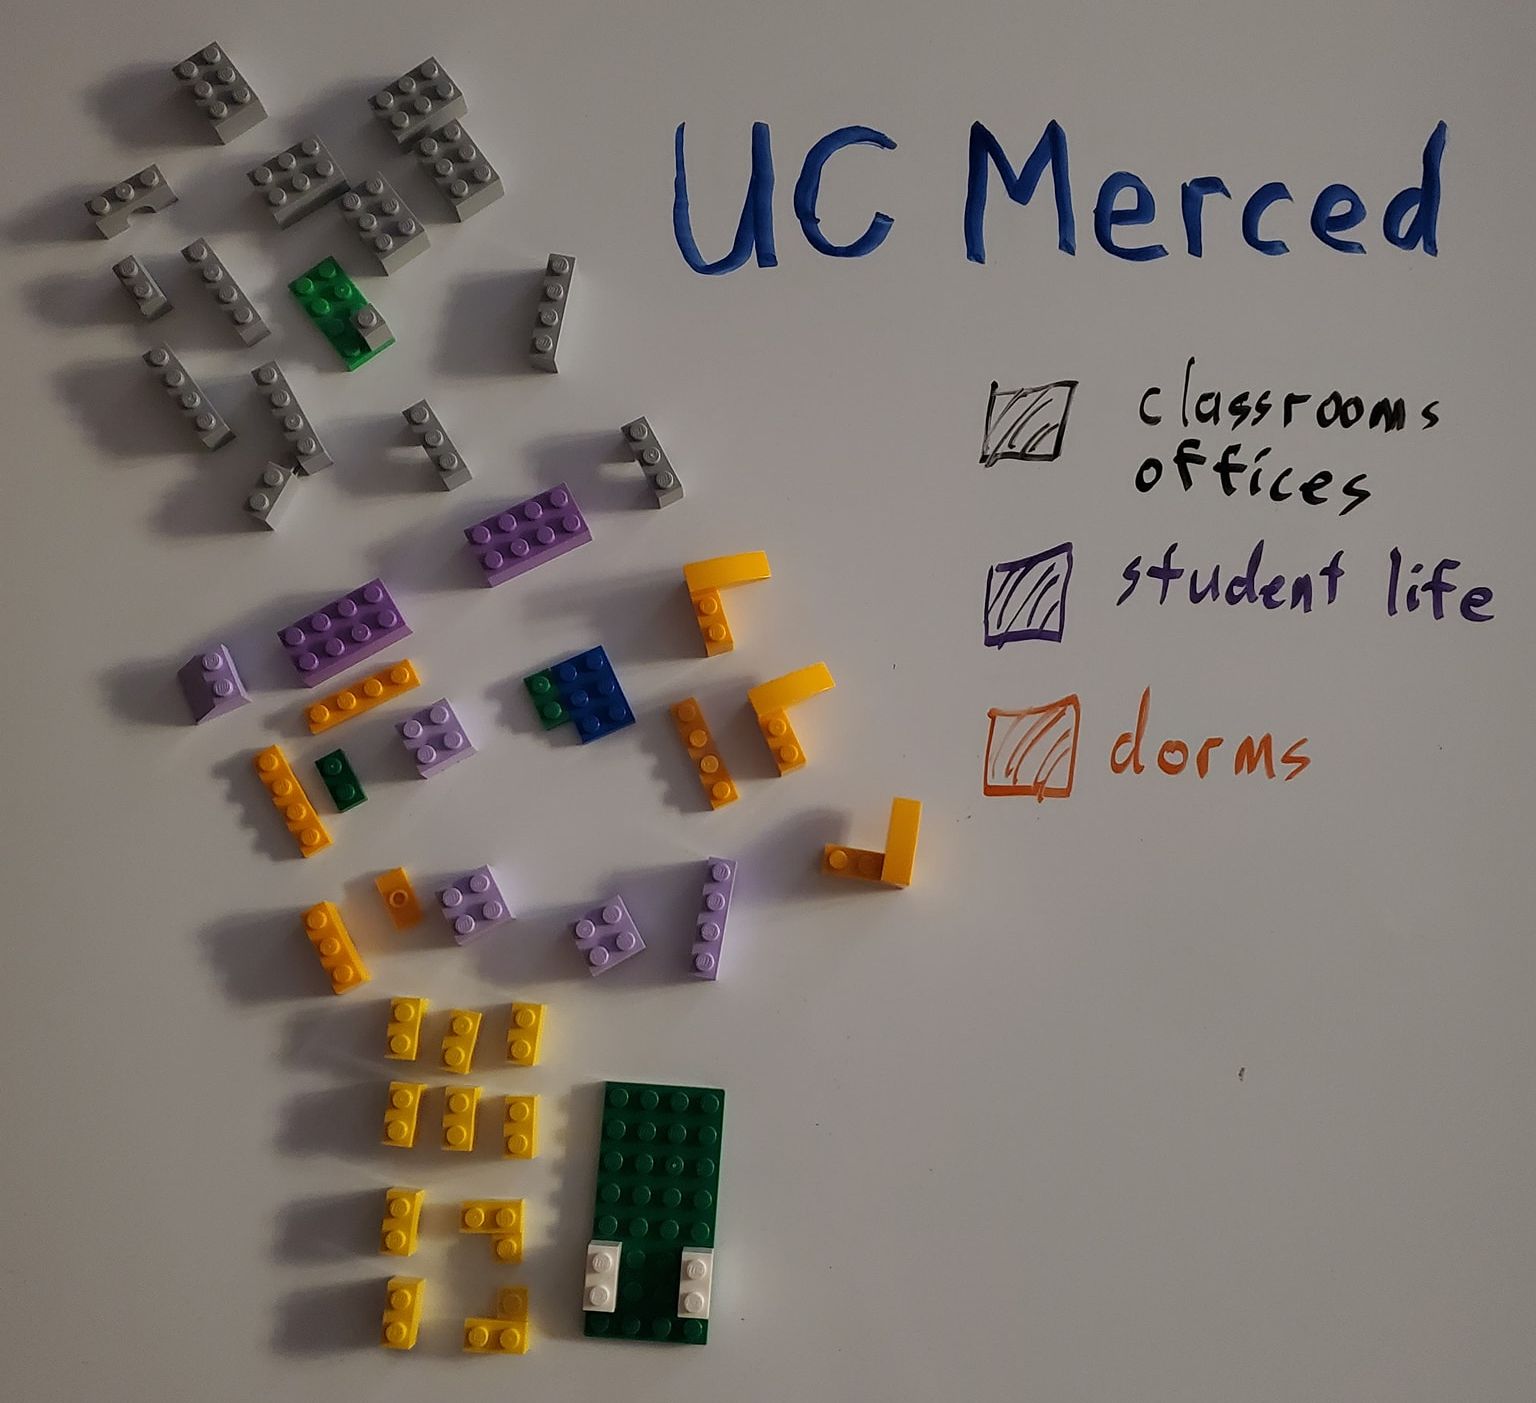 UC Merced
classrooms
offices
student life
dorms